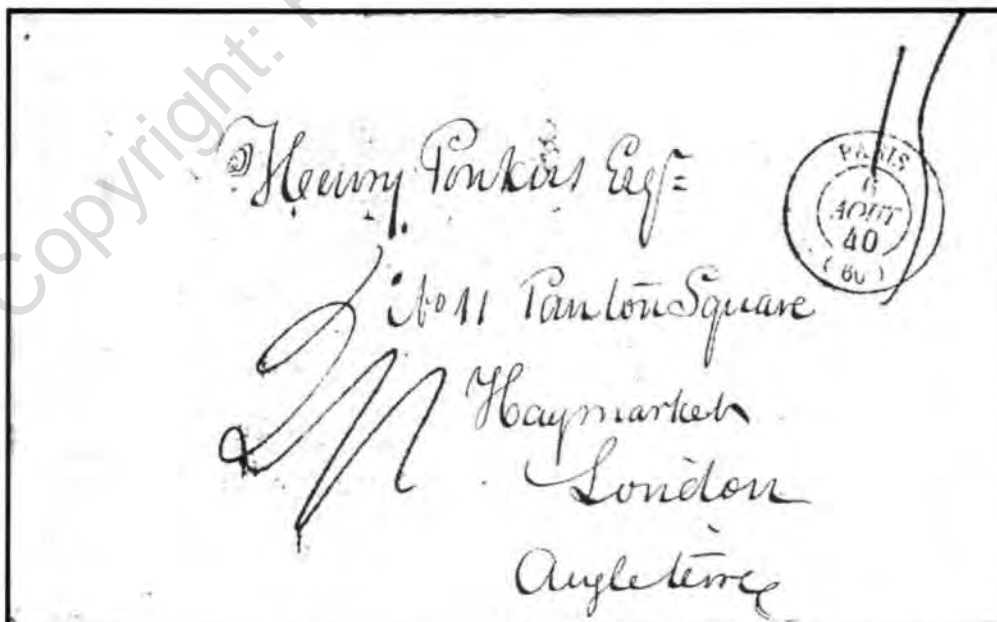 Copyright:
Henry Ponkiss Esqr
No 11 Panton Square
Haymarket
London
Angleterre
PARIS
6
AOUT
40
(60)